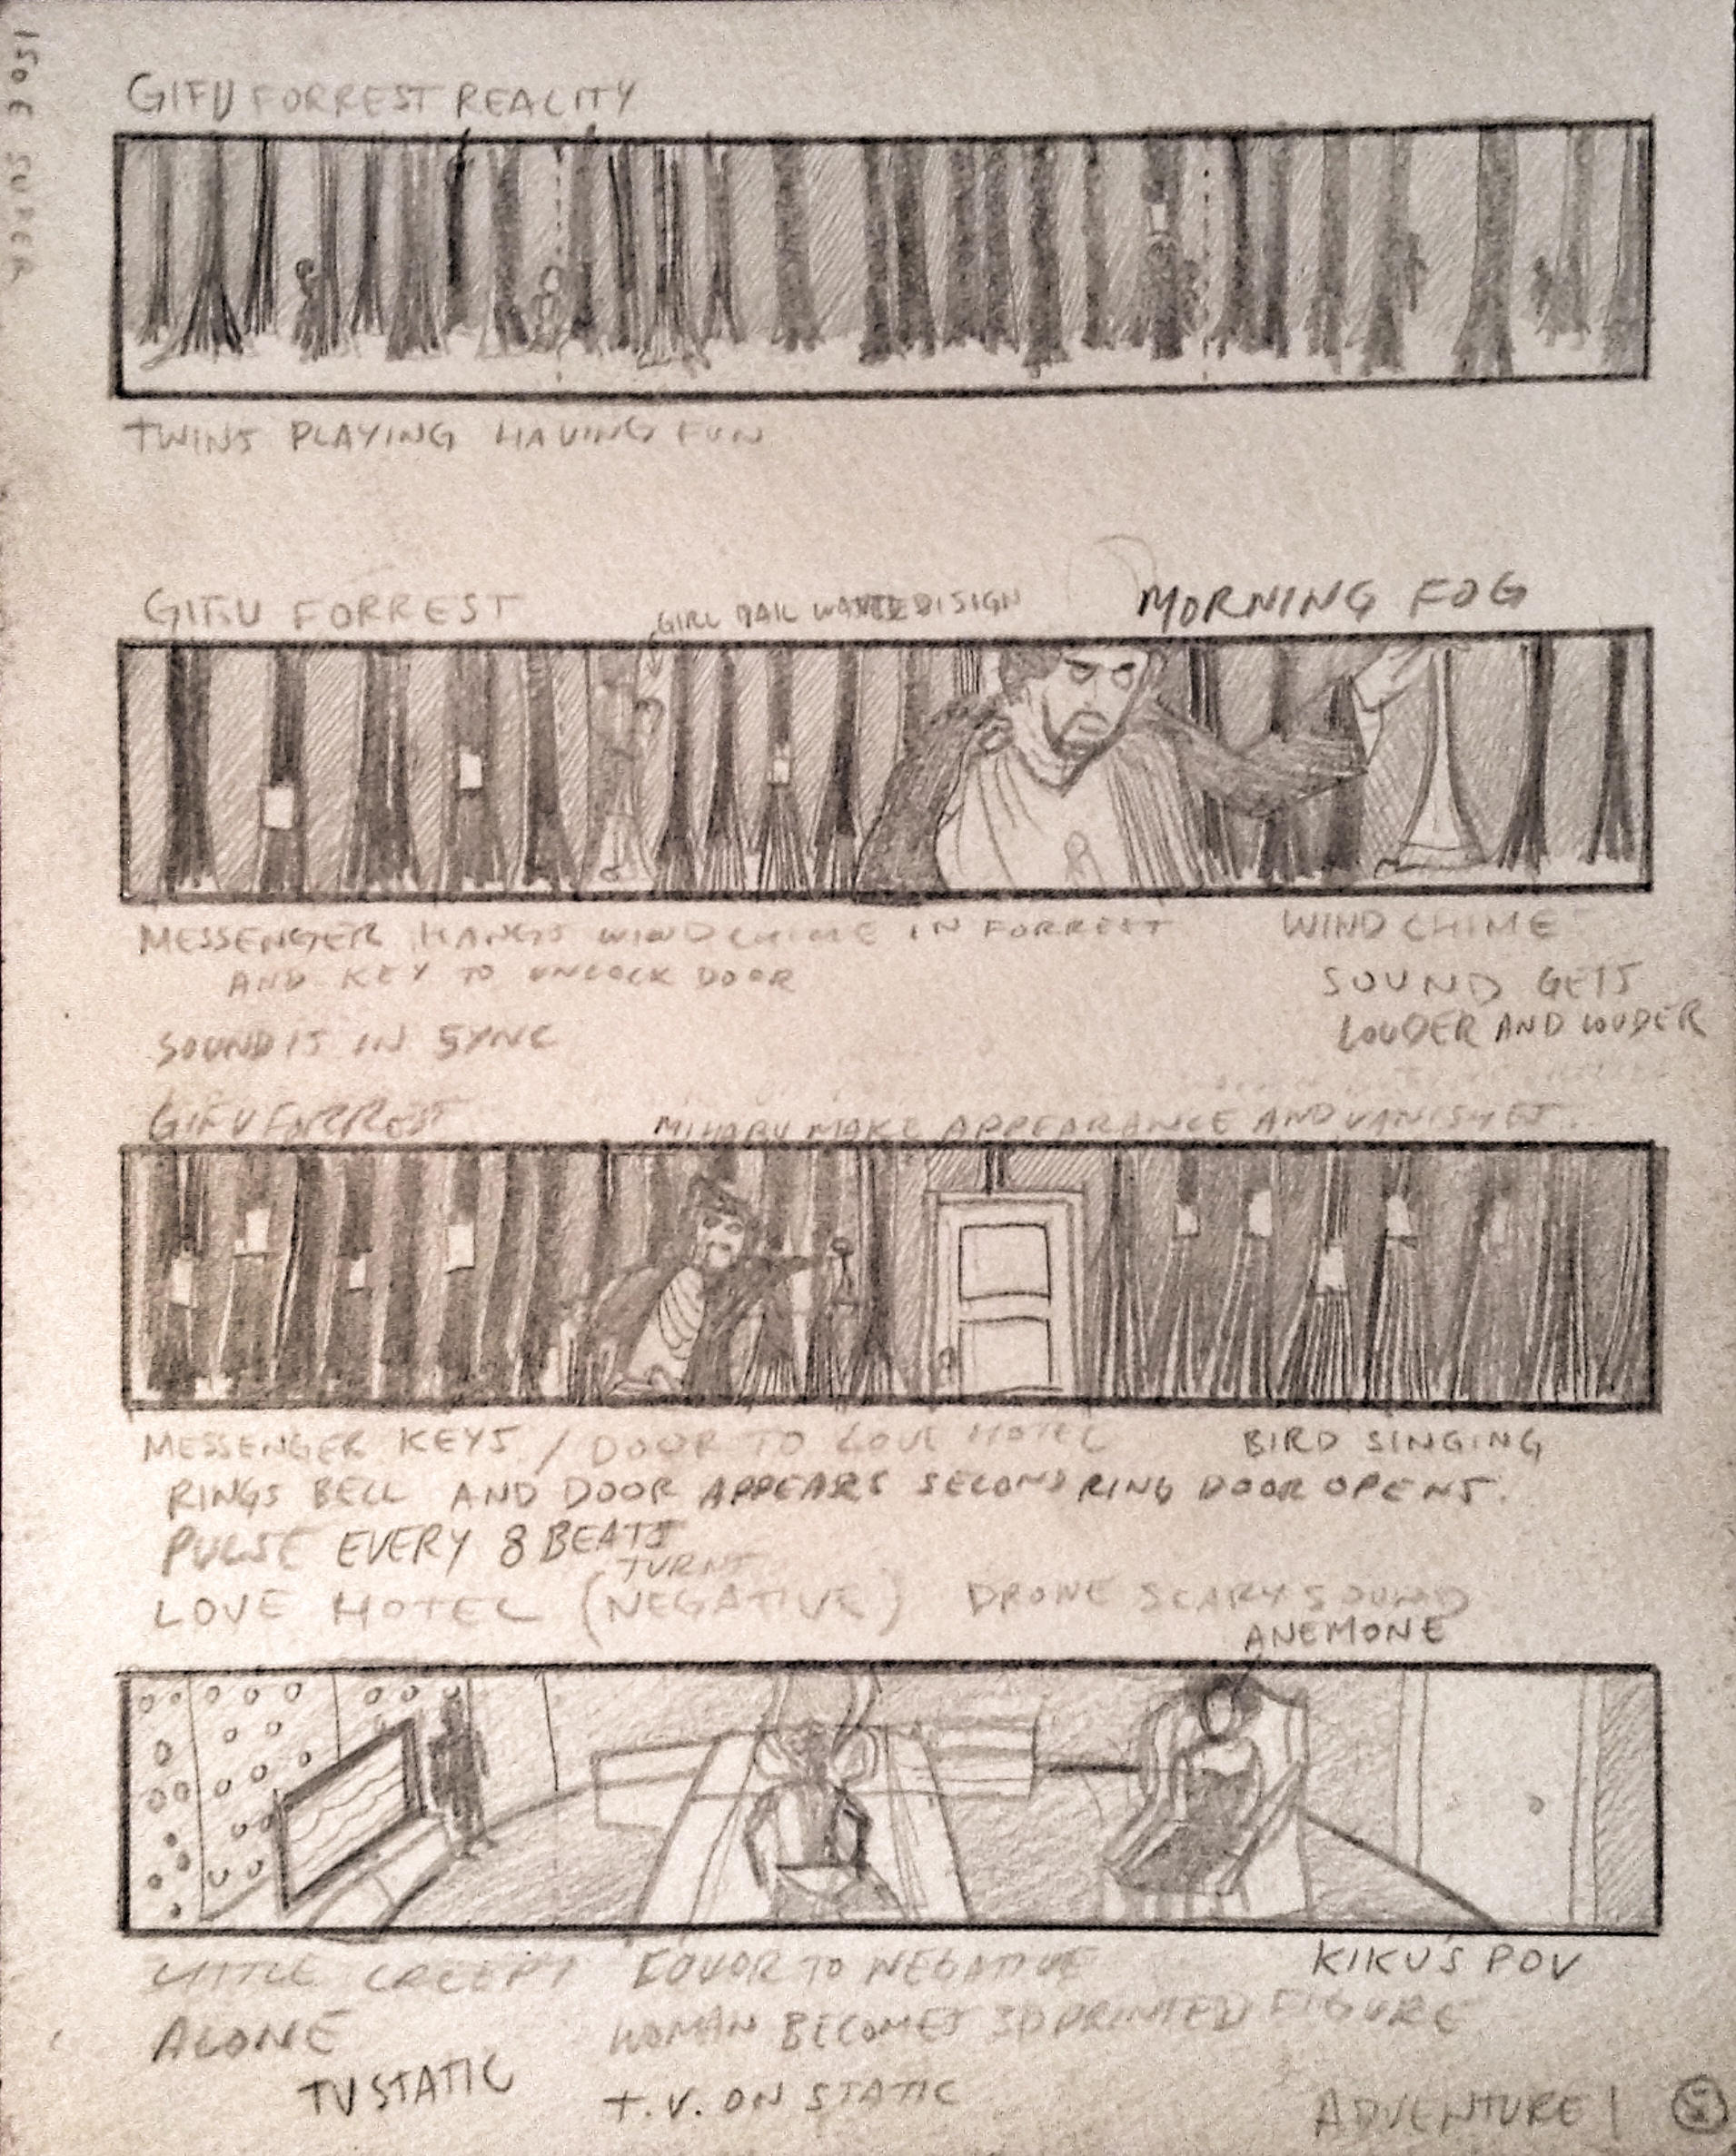 GIFU FORREST REALITY
TWINS PLAYING HAVING FUN
GIFU FORREST
GIRL
MORNING FOG
MESSENGER HANGS WINDCHIME IN FORREST
AND KEY TO UNLOCK DOOR
WINDCHIME
SOUND GETS
LOUDER AND LOUDER
SOUND IS IN SYNC
GIFU FORREST
MIHARU MAKE APPEARANCE AND VANISHES.
MESSENGER KEYS / DOOR TO LOVE HOTEL
BIRD SINGING
RINGS BELL AND DOOR APPEARS SECOND RING DOOR OPENS.
PULSE EVERY 8 BEATS
TURNS
LOVE HOTEL (NEGATIVE) DRONE SCARY SOUND
ANEMONE
LITTLE CREEPY
TO NEGATIVE
KIKU'S POV
ALONE
WOMAN BECOMES 3D PRINTED FIGURE
TV STATIC
T.V. ON STATIC
ADVENTURE 1